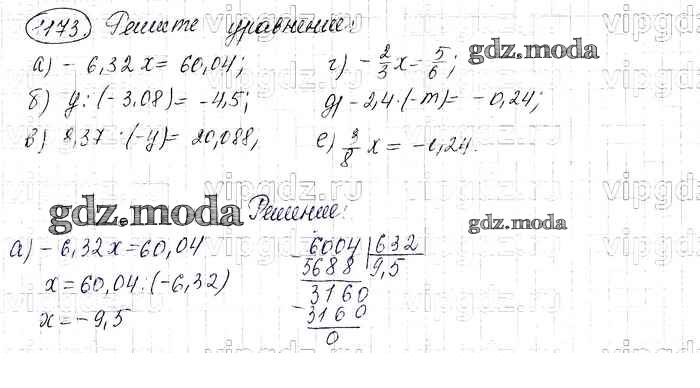 1173. Решите уравнение:
а) - 6,32x = 60,04; г) - 2/3 x = 5/6;
б) y : (-3,08) = -4,5; д) - 2,4 · (-m) = -0,24;
в) 8,37 · (-y) = 20,088; е) 3/8 x = -0,24.
gdz.moda
Решение:
gdz.moda
gdz.moda
а) - 6,32x = 60,04
x = 60,04 : (-6,32)
x = -9,5
- 6004 | 632
5688 | 9,5
- 3160
3160
0
vipgdz.ru